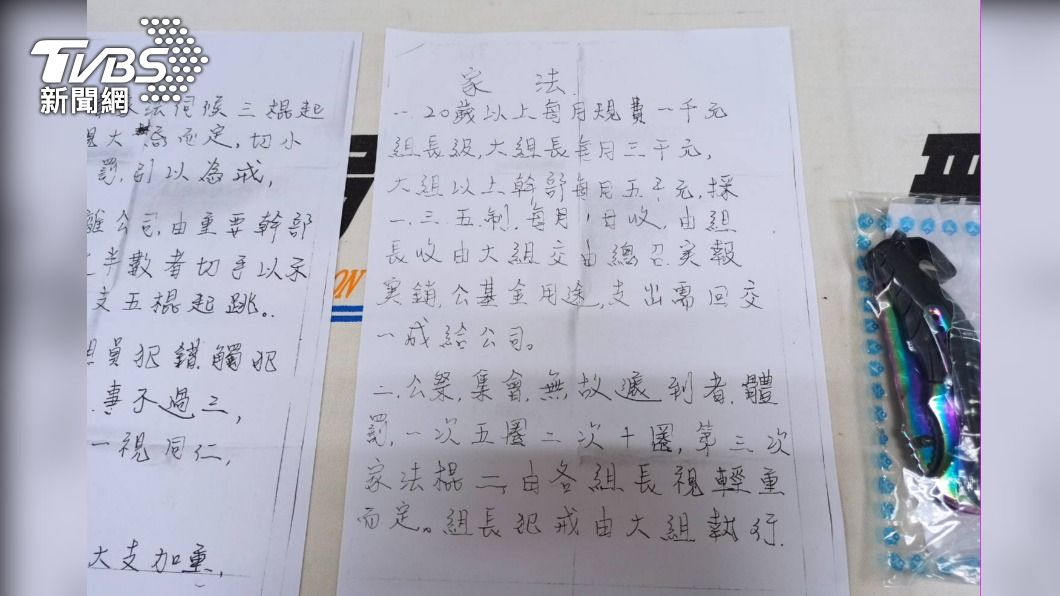 TVBS
新聞網
家法伺候三棍起
大 而定,切小
罰,引以為戒,
離公司,由重要幹部
半數者切手以示
支五棍起跳。
組員犯錯觸犯
事不過三,
一視同仁,
大支加重,
ON
家 法.
一.20歲以上每月規費一千元
組長級,大組長每月三千元,
大組以上幹部每月五千元,採
一.三.五制,每月1日收,由組
長收由大組交由總召.実報
実銷.公基金用途,支出需回交
一成給公司。
二.公祭,集會,無故遲到者,體
罰,一次五圈二次十圈,第三次
家法棍二,由各組長視輕重
而定。組長犯戒由大組執行.